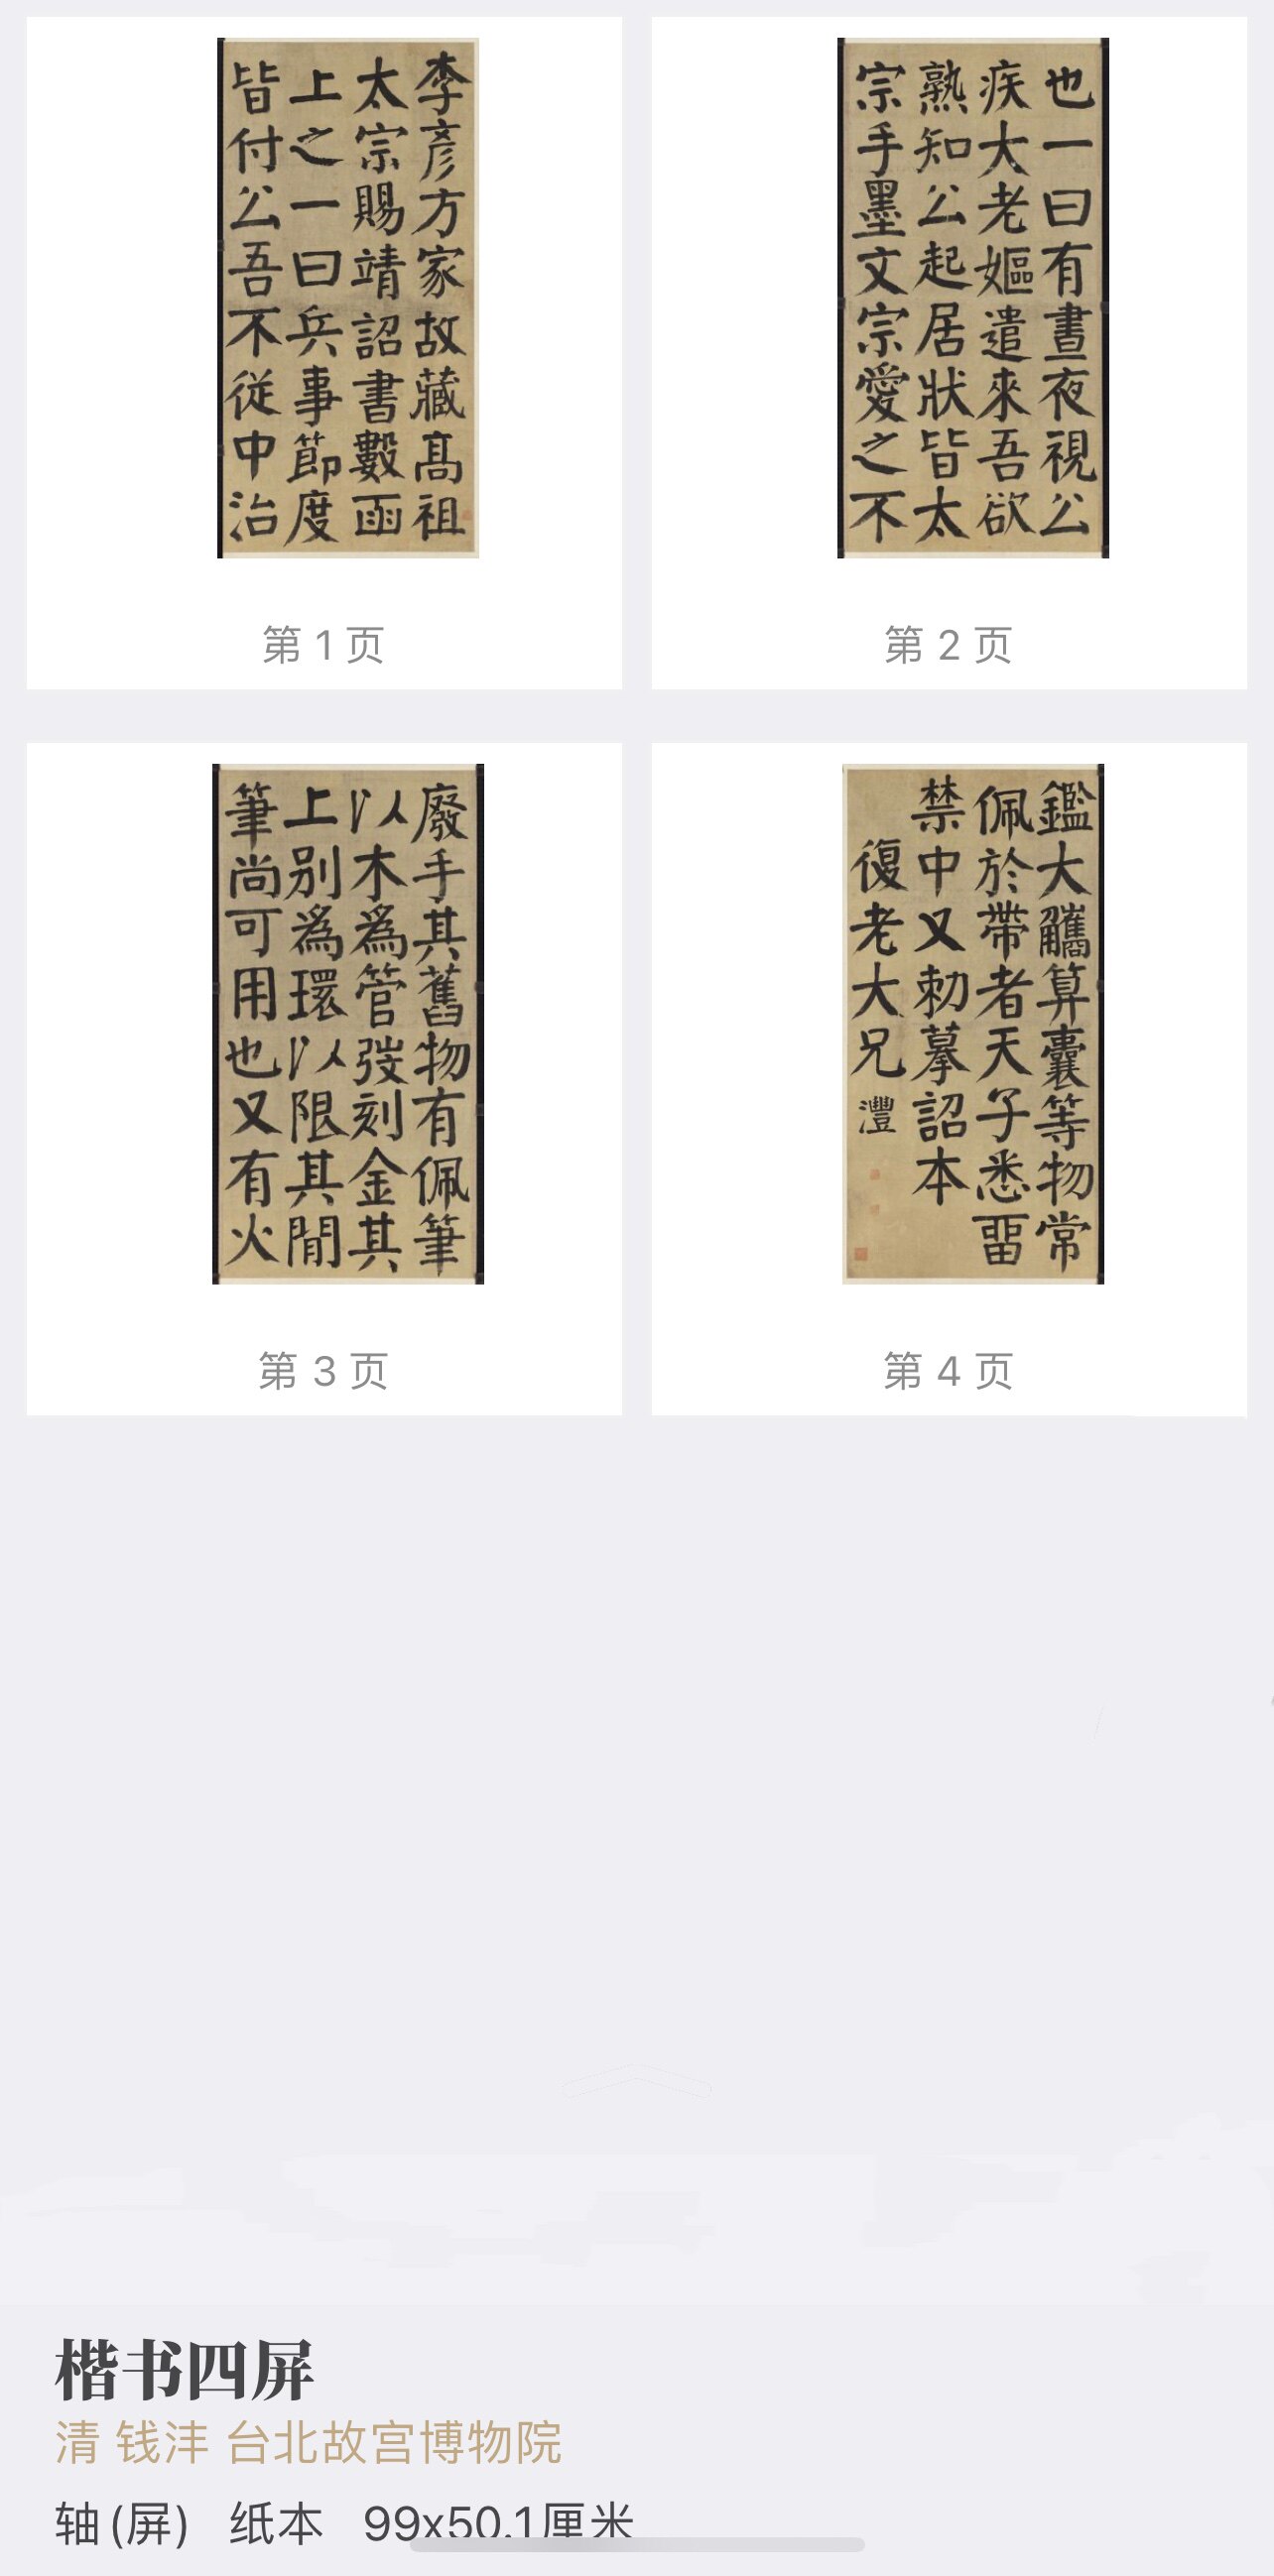 李彥方家故藏髙祖
太宗賜靖詔書數函
上之一曰兵事節度
皆付公吾不從中治
第 1 页
也一曰有晝夜視公
疾大老嫗遣來吾欲
熟知公起居狀皆太
宗手墨文宗愛之不
第 2 页
廢手其舊物有佩筆
以木爲管弢刻金其
上别爲環以限其閒
筆尚可用也又有火
第 3 页
鑑大觿算囊等物常
佩於帶者天子悉畱
禁中又勑摹詔本
復老大兄 灃
第 4 页
楷书四屏
清 钱沣 台北故宫博物院
轴(屏) 纸本 99x50.1厘米